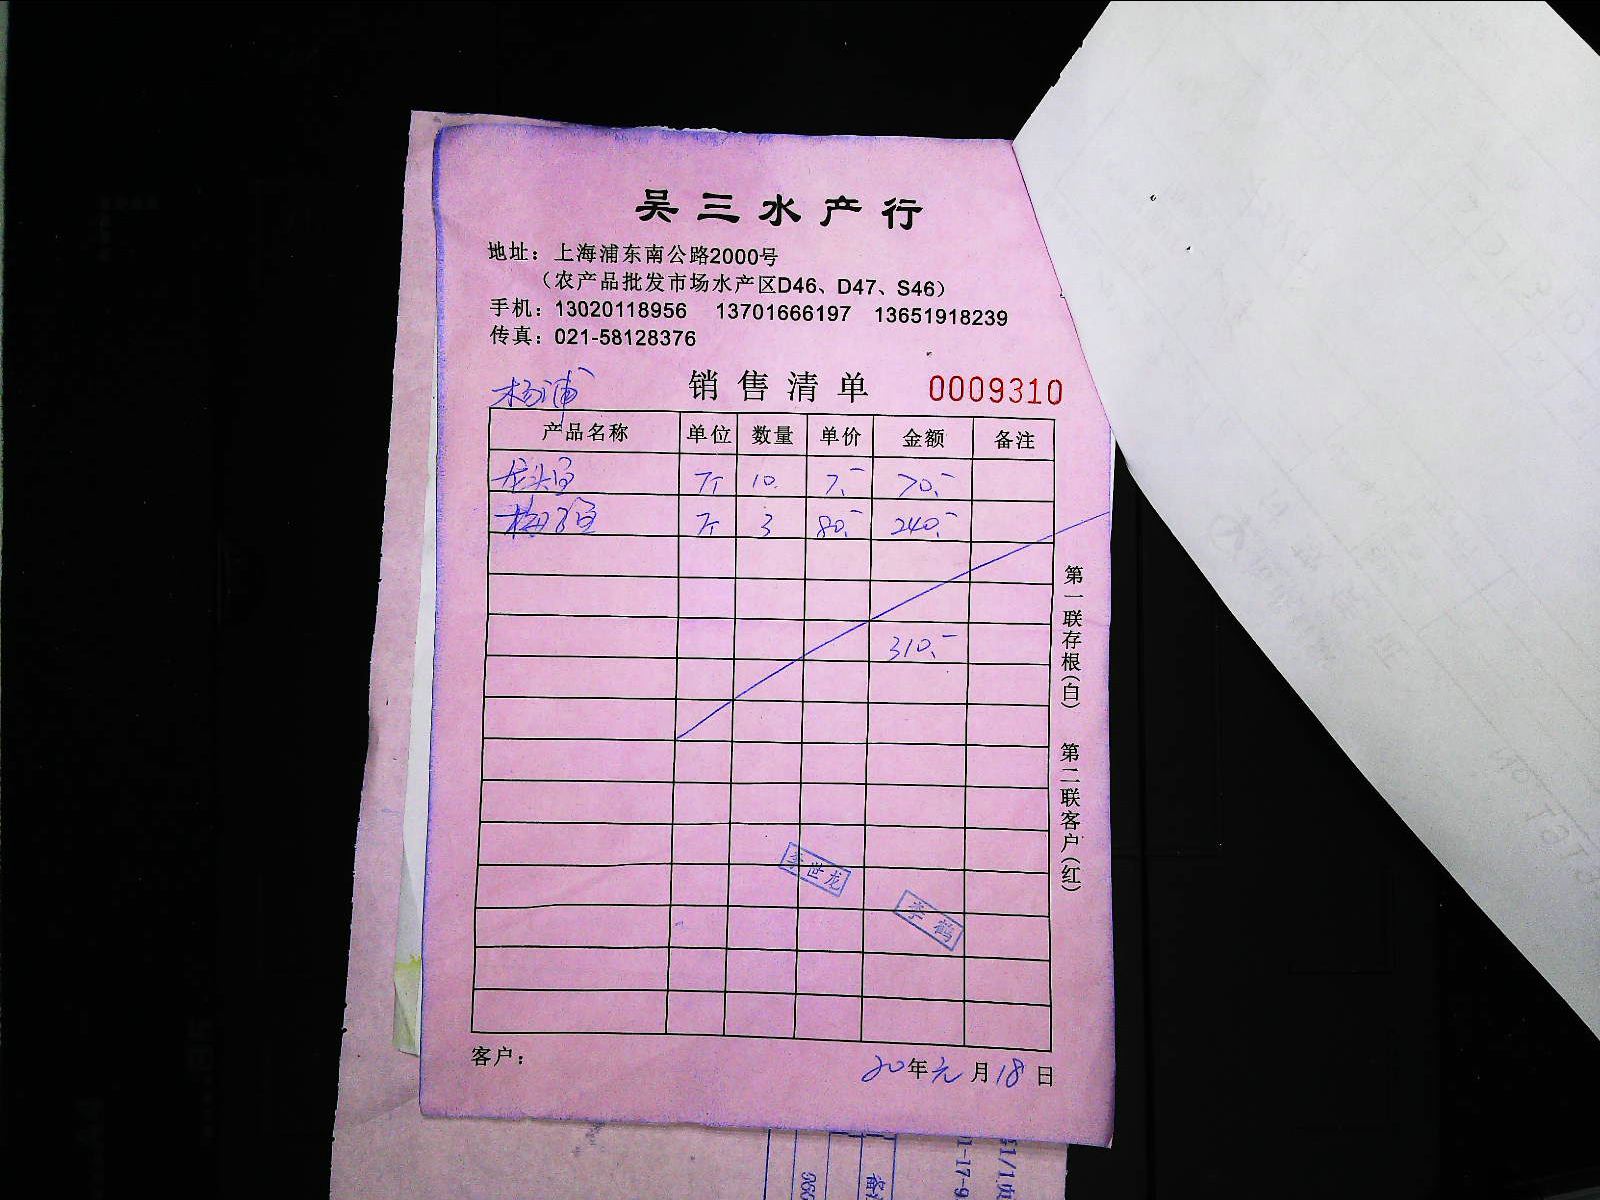 吴三水产行
地址：上海浦东南公路2000号
（农产品批发市场水产区D46、D47、S46）
手机：13020118956 13701666197 13651918239
传真：021-58128376
杨浦 销售清单 0009310
产品名称 单位 数量 单价 金额 备注
龙头鱼 斤 10. 7.- 70.-
梅子鱼 斤 3 80.- 240.-
310.-
第一联存根（白） 第二联客户（红）
李世龙
李鹤
客户： 20年元月18日